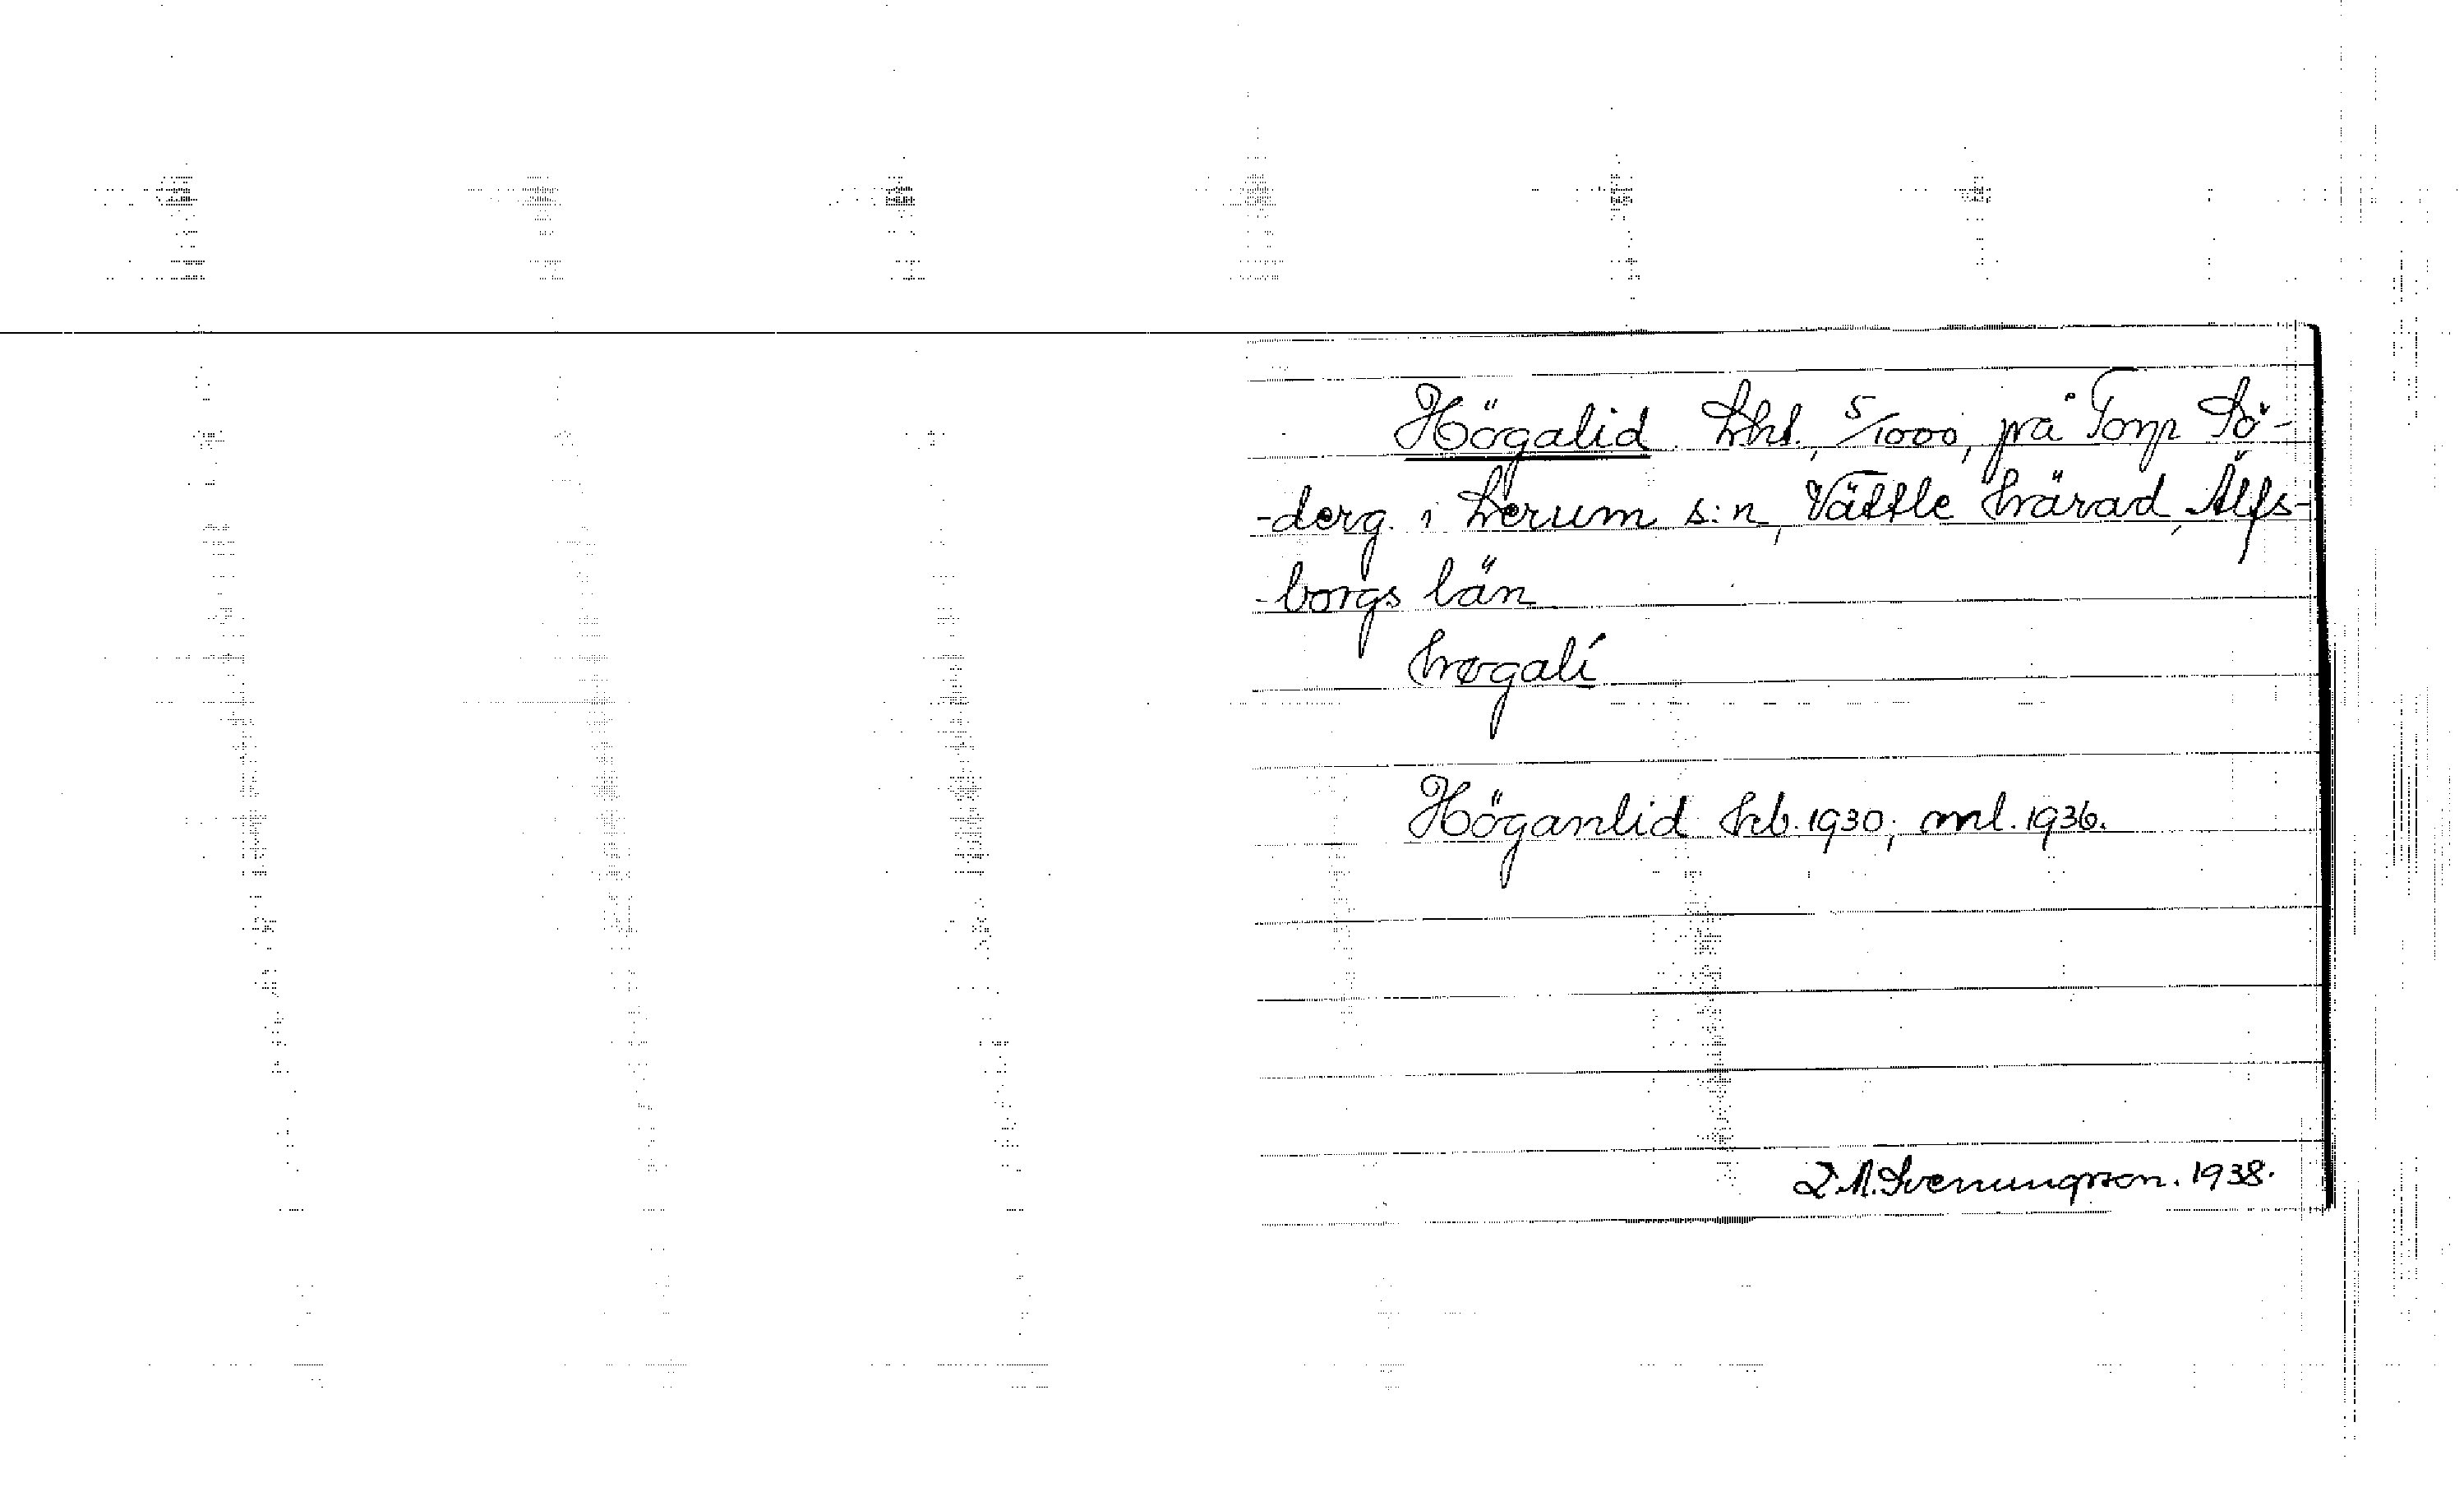 Högalid. Lht., 5/1000, på Torp Sö-
-derg. i Lerum s:n, Vättle härad, Älfs-
-borgs län
høgalí
Höganlid Skb. 1930; ml. 1936.
D. A. Svenungsson. 1938.